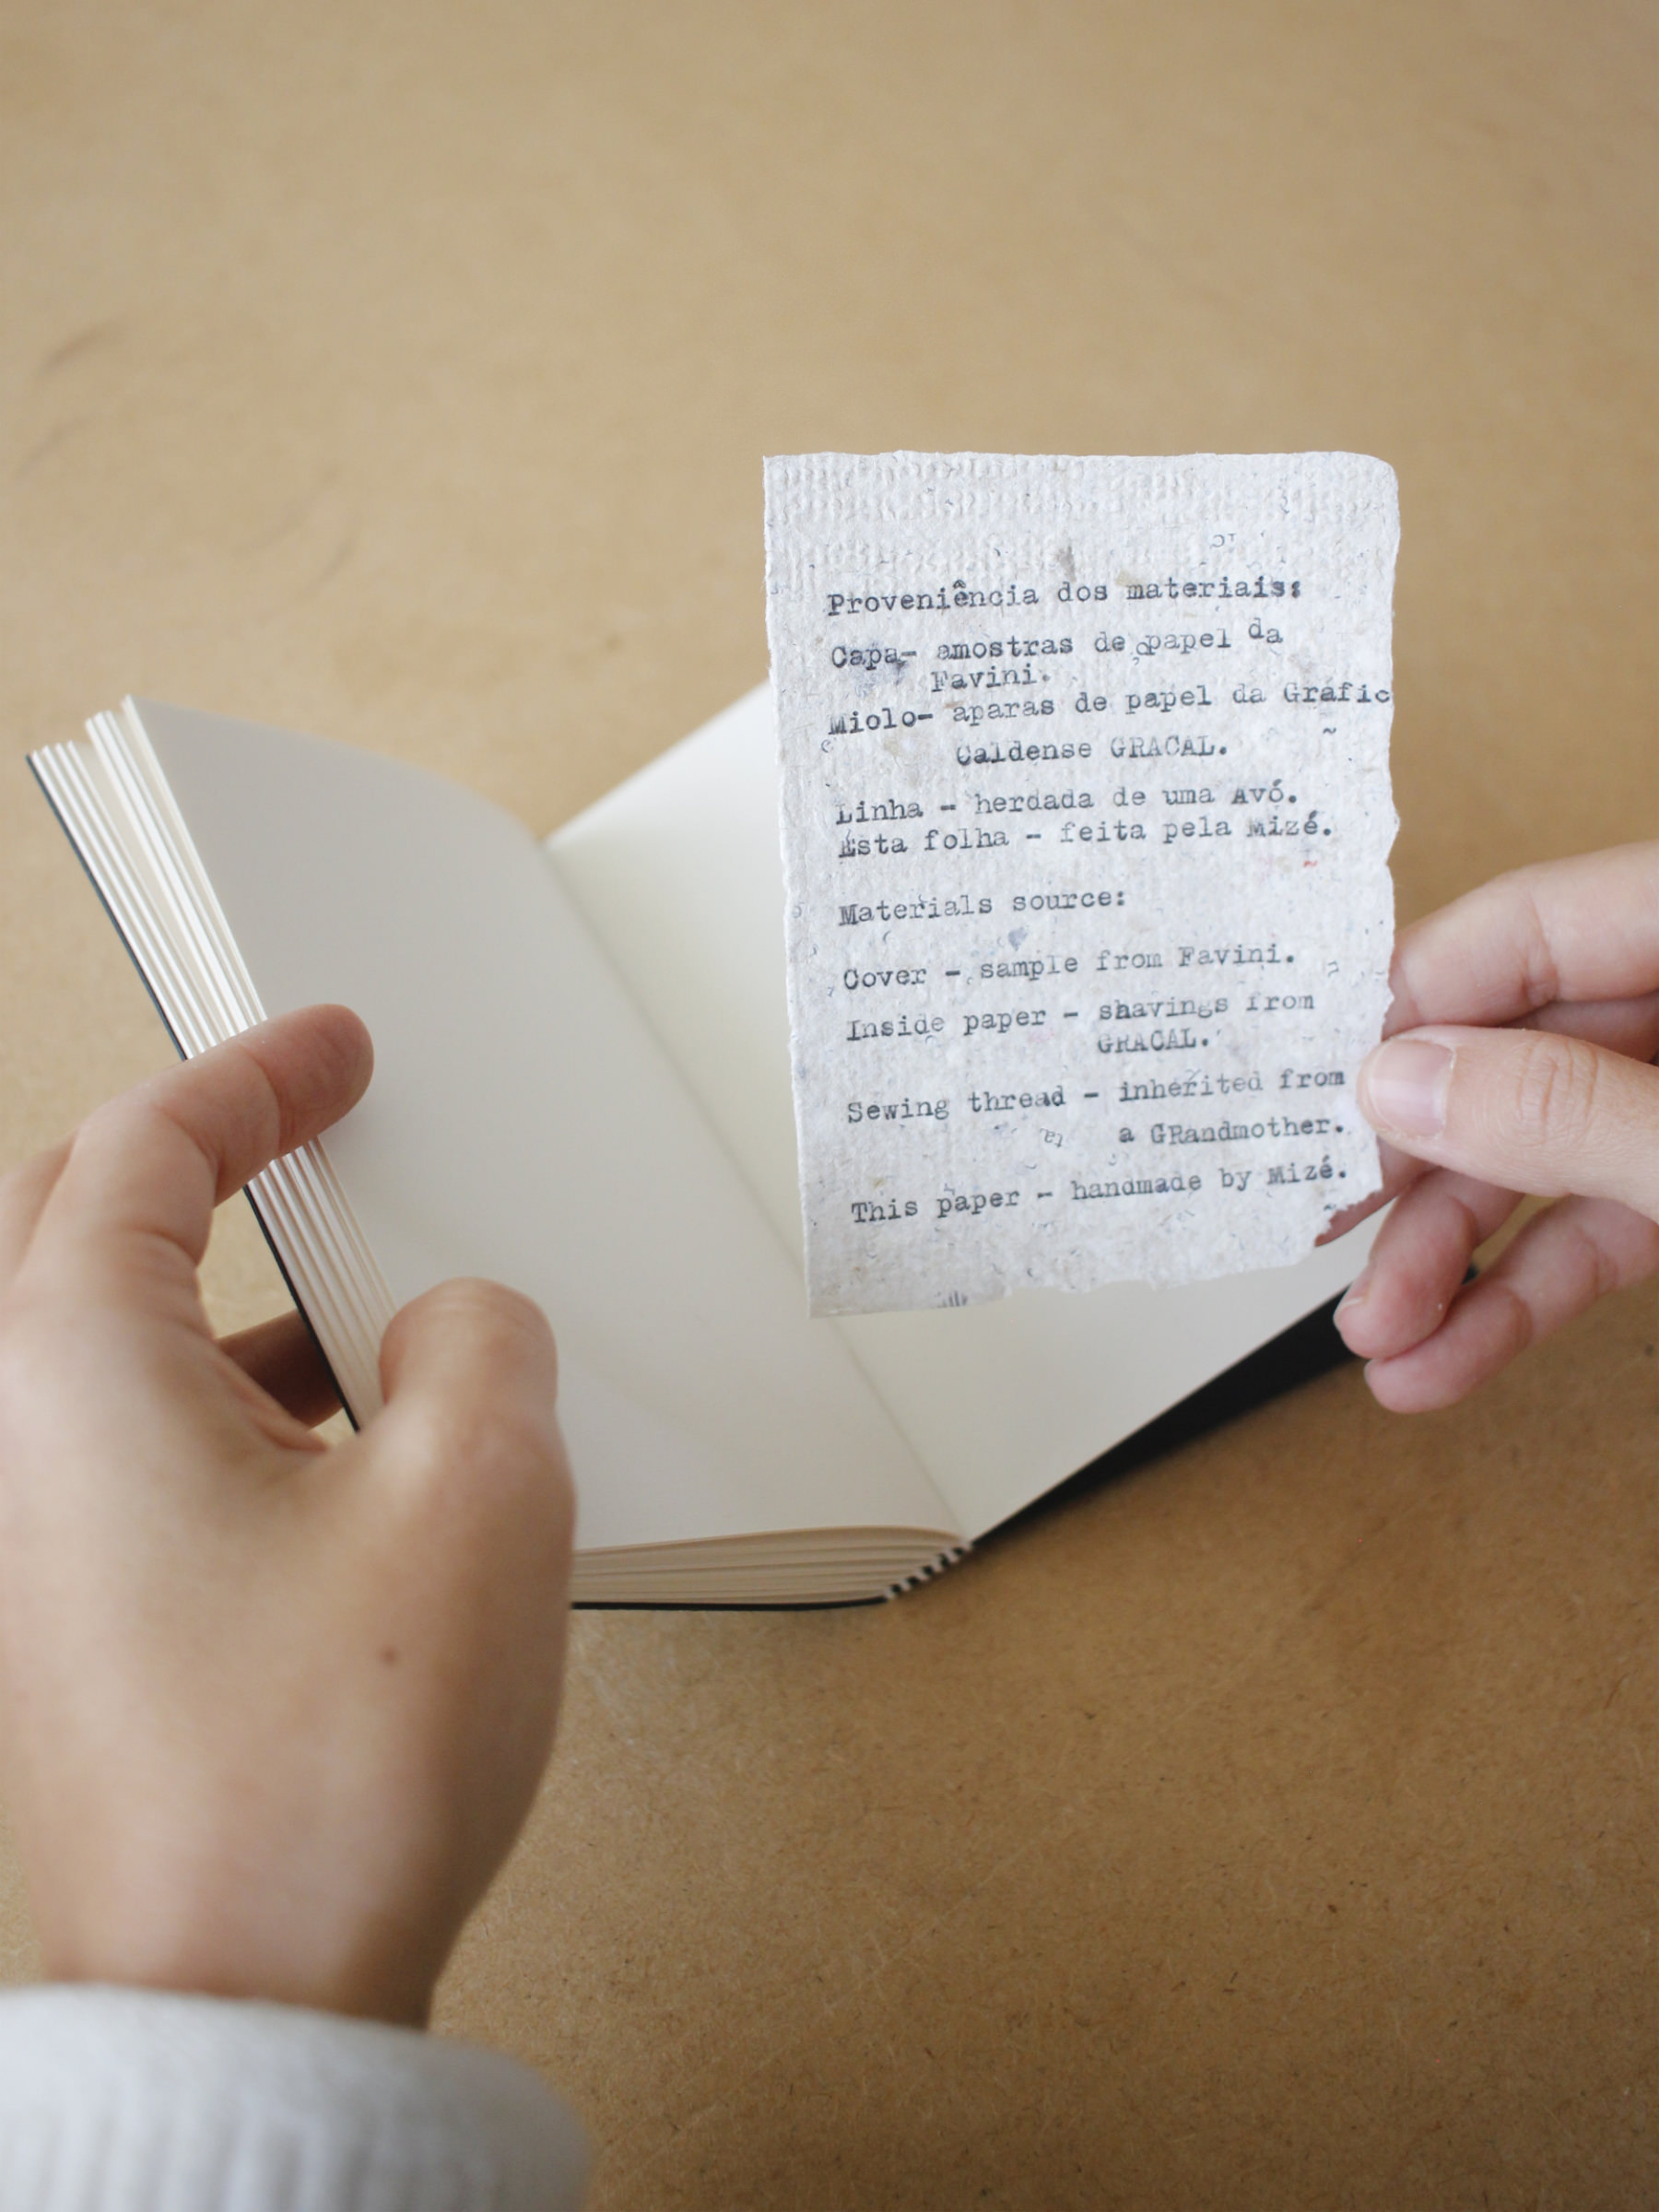 Proveniência dos materiais:
Capa- amostras de papel da
Favini.
Miolo- aparas de papel da Gráfic
Caldense GRACAL.
Linha - herdada de uma Avó.
Esta folha - feita pela Mizé.
Materials source:
Cover - sample from Favini.
Inside paper - shavings from
GRACAL.
Sewing thread - inherited from
a GRandmother.
This paper - handmade by Mizé.